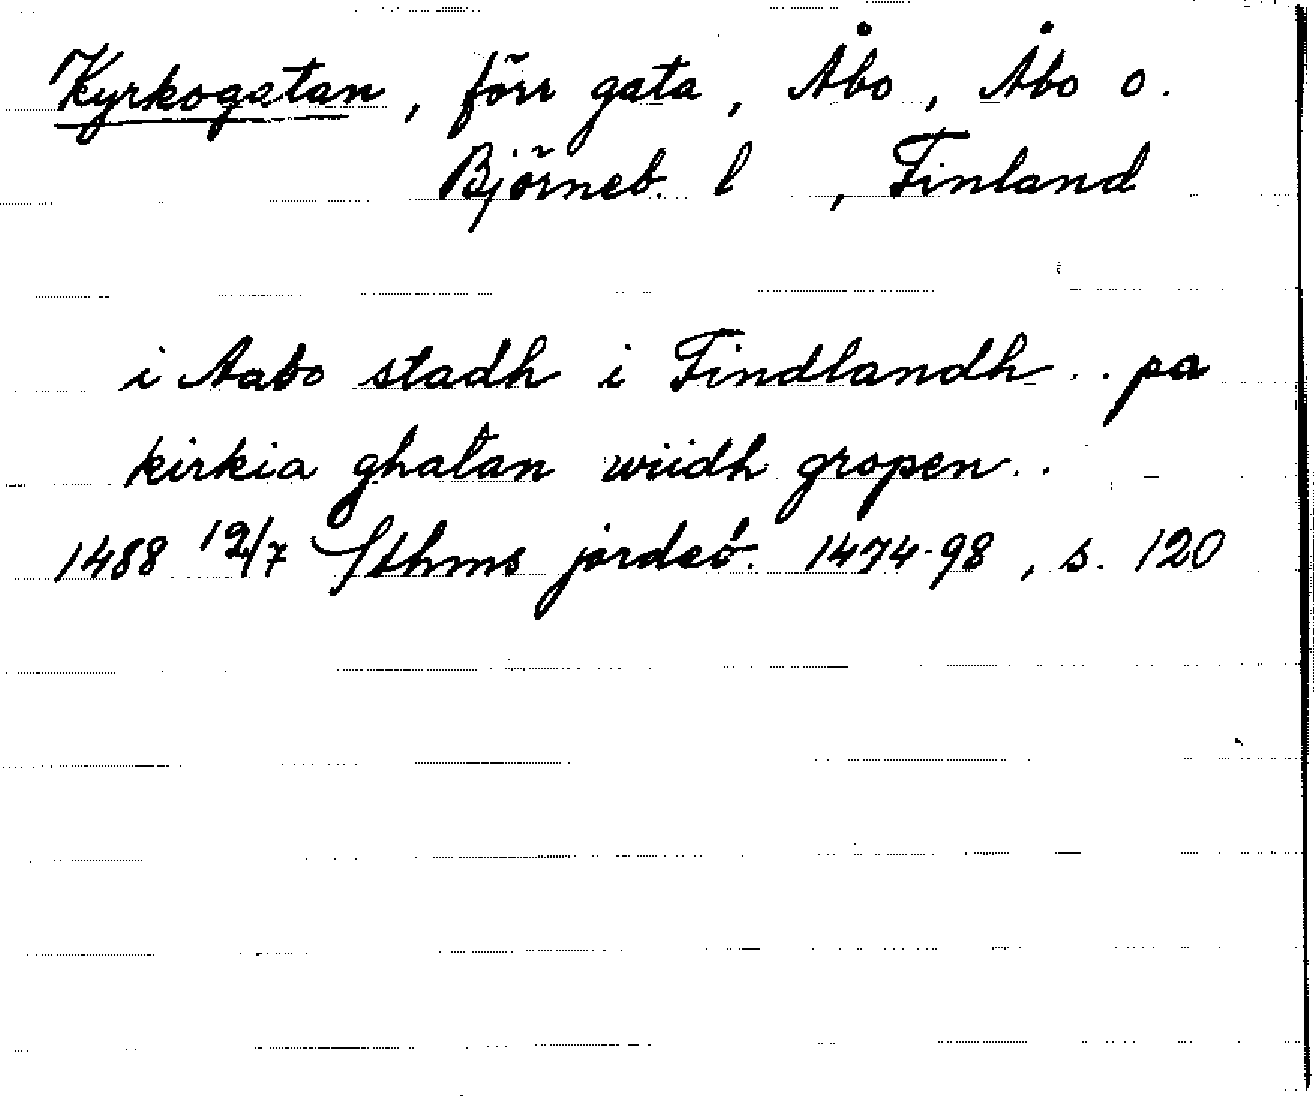 Kyrkogatan, förr gata, Åbo, Åbo o.
Björneb. l, Finland
i Aabo stadh i Findlandh . . pa
kirkia ghatan wiidh gropen . .
1488 12/7 Sthms jordeb. 1474-98, s. 120